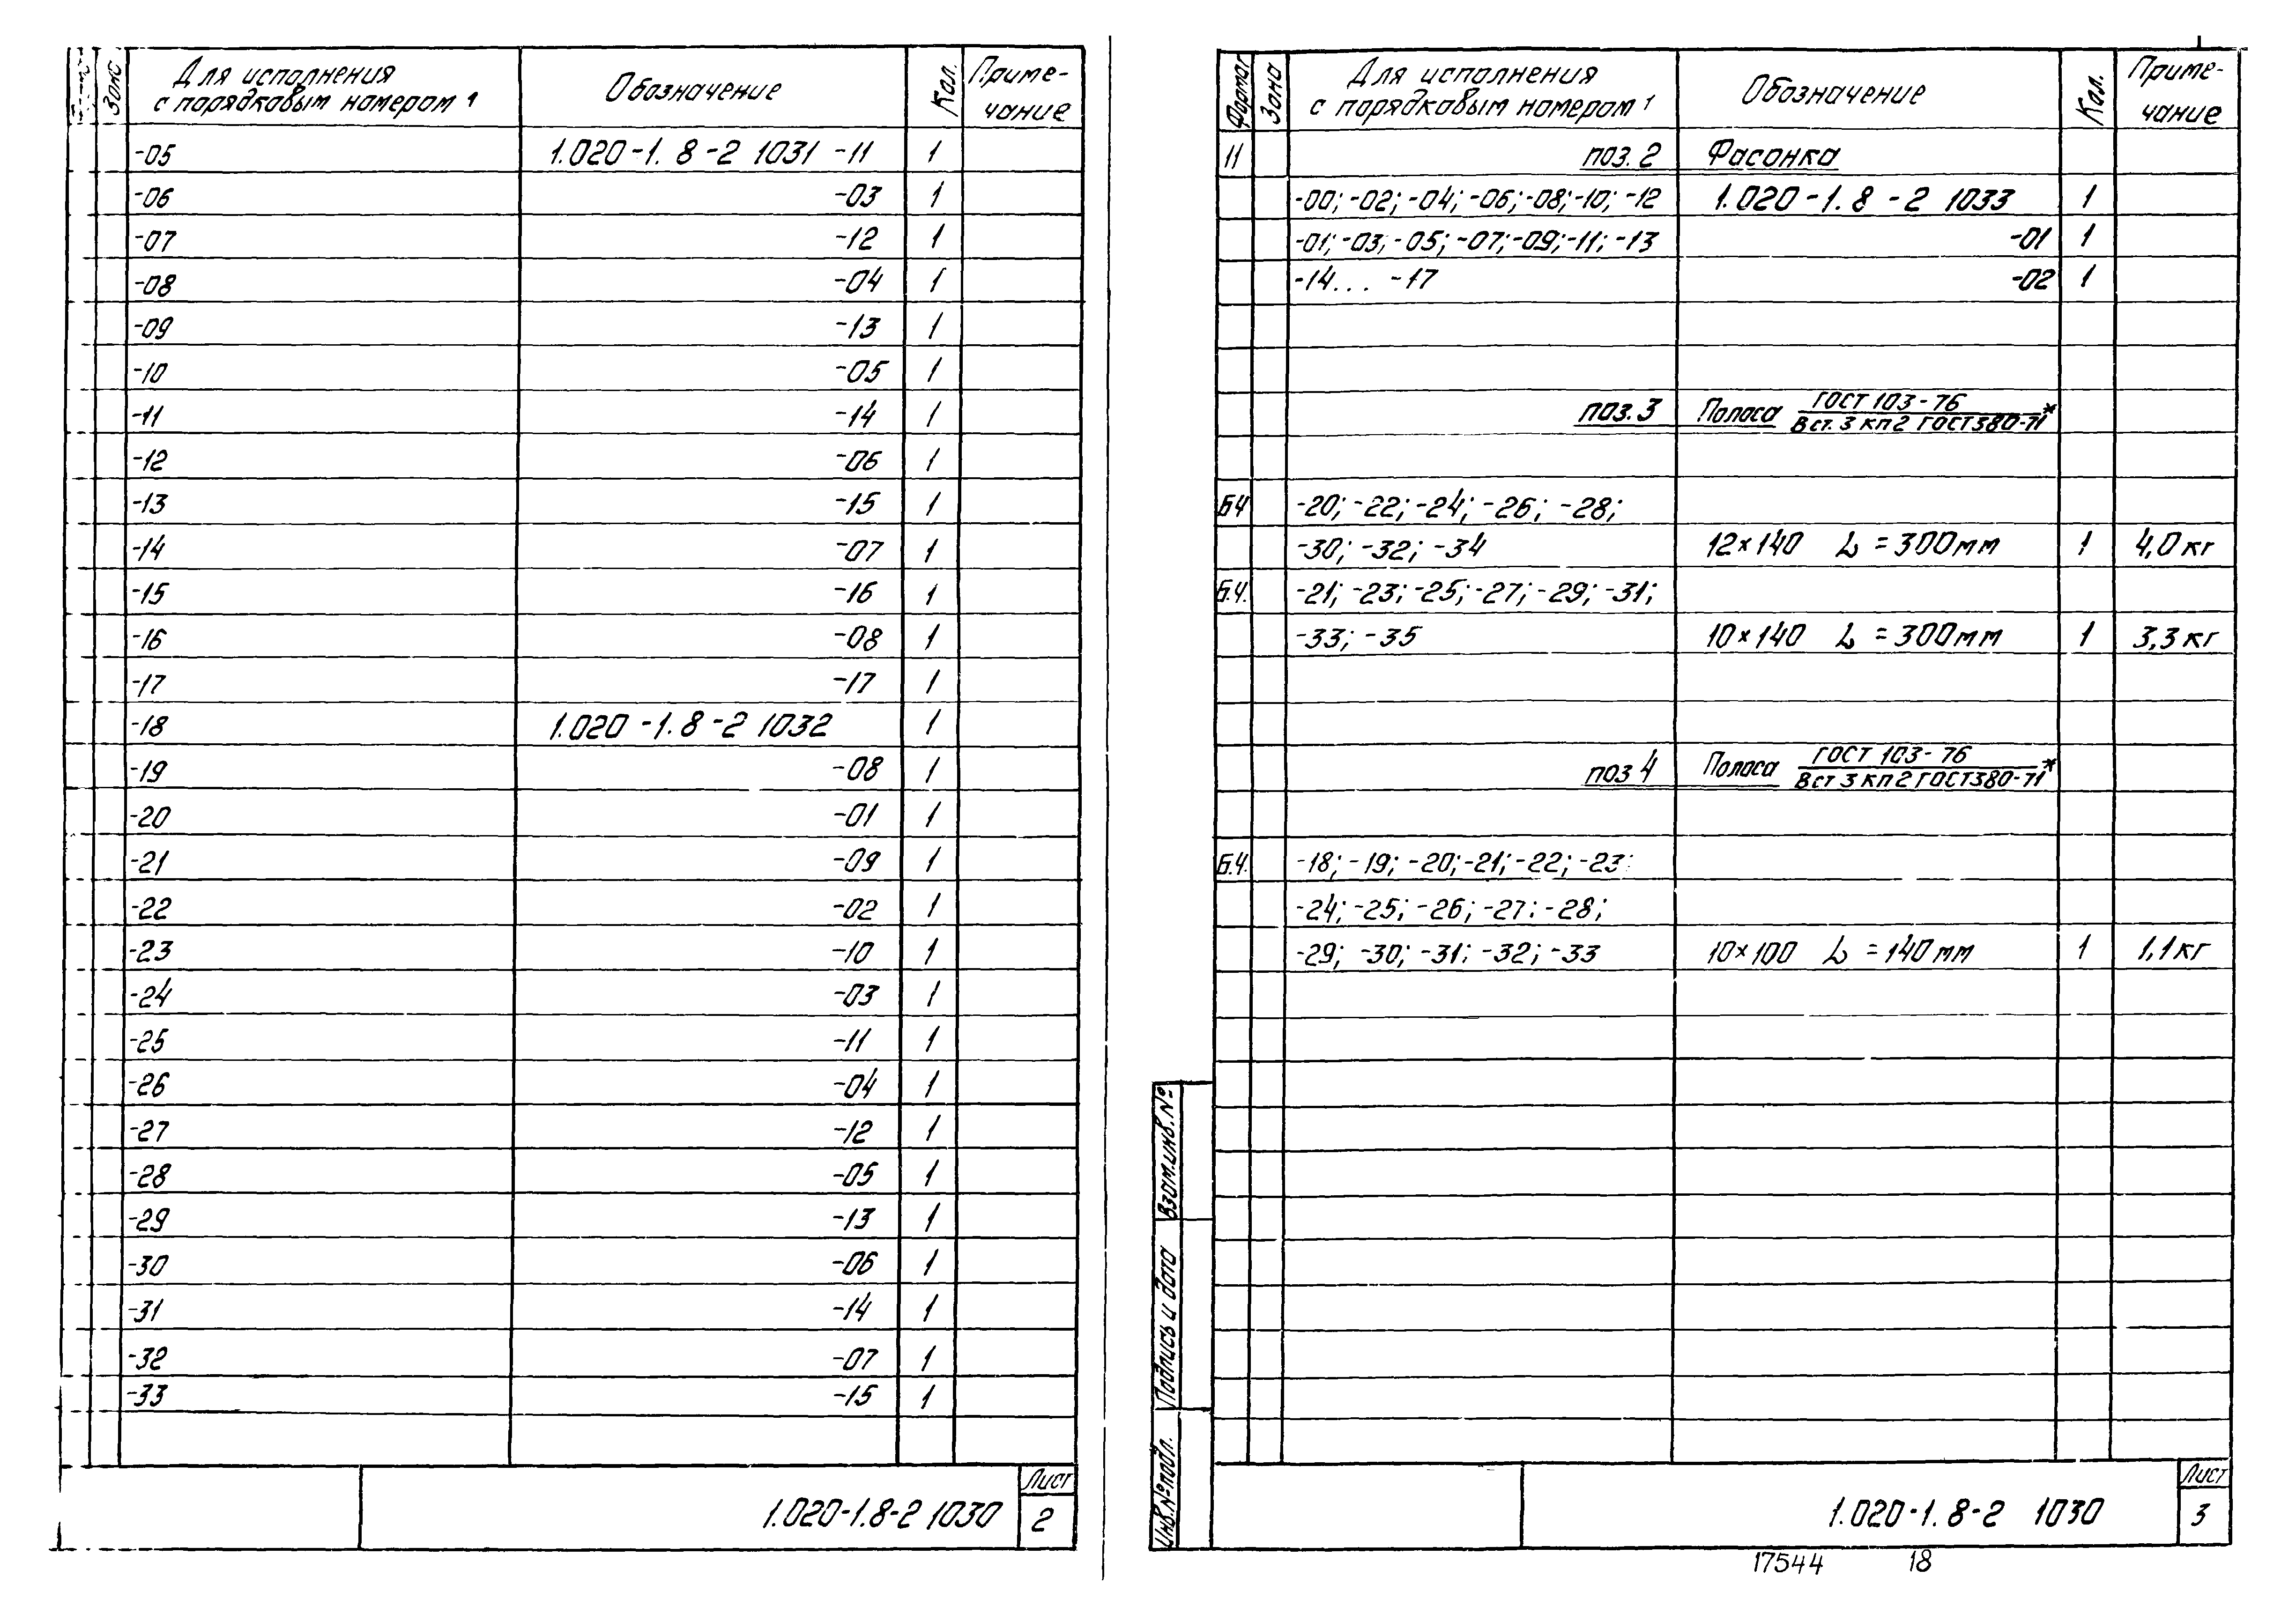 Зона Для исполнения с порядковым номером 1 Обозначение Кол. Приме-чание
-05 1.020-1.8-2 1031 -11 1
-06 -03 1
-07 -12 1
-08 -04 1
-09 -13 1
-10 -05 1
-11 -14 1
-12 -06 1
-13 -15 1
-14 -07 1
-15 -16 1
-16 -08 1
-17 -17 1
-18 1.020-1.8-2 1032 1
-19 -08 1
-20 -01 1
-21 -09 1
-22 -02 1
-23 -10 1
-24 -03 1
-25 -11 1
-26 -04 1
-27 -12 1
-28 -05 1
-29 -13 1
-30 -06 1
-31 -14 1
-32 -07 1
-33 -15 1
1.020-1.8-2 1030
Лист
2
Формат Зона Для исполнения с порядковым номером 1 Обозначение Кол. Приме-чание
11 поз. 2 Фасонка
-00; -02; -04; -06; -08; -10; -12 1.020-1.8-2 1033 1
-01; -03; -05; -07; -09; -11; -13 -01 1
-14... -17 -02 1
поз. 3 Полоса ГОСТ 103-76
Вст. 3 кп2 ГОСТ380-71*
БЧ -20; -22; -24; -26; -28;
-30; -32; -34 12×140 L = 300мм 1 4,0 кг
Б.Ч. -21; -23; -25; -27; -29; -31;
-33; -35 10×140 L = 300мм 1 3,3 кг
поз 4 Полоса ГОСТ 103-76
Вст 3 кп2 ГОСТ380-71*
Б.Ч. -18; -19; -20; -21; -22; -23;
-24; -25; -26; -27; -28;
-29; -30; -31; -32; -33 10×100 L = 140 мм 1 1,1 кг
Взам.инв.№
Подпись и дата
Инв.№подл.
1.020-1.8-2 1030
Лист
3
17544 18